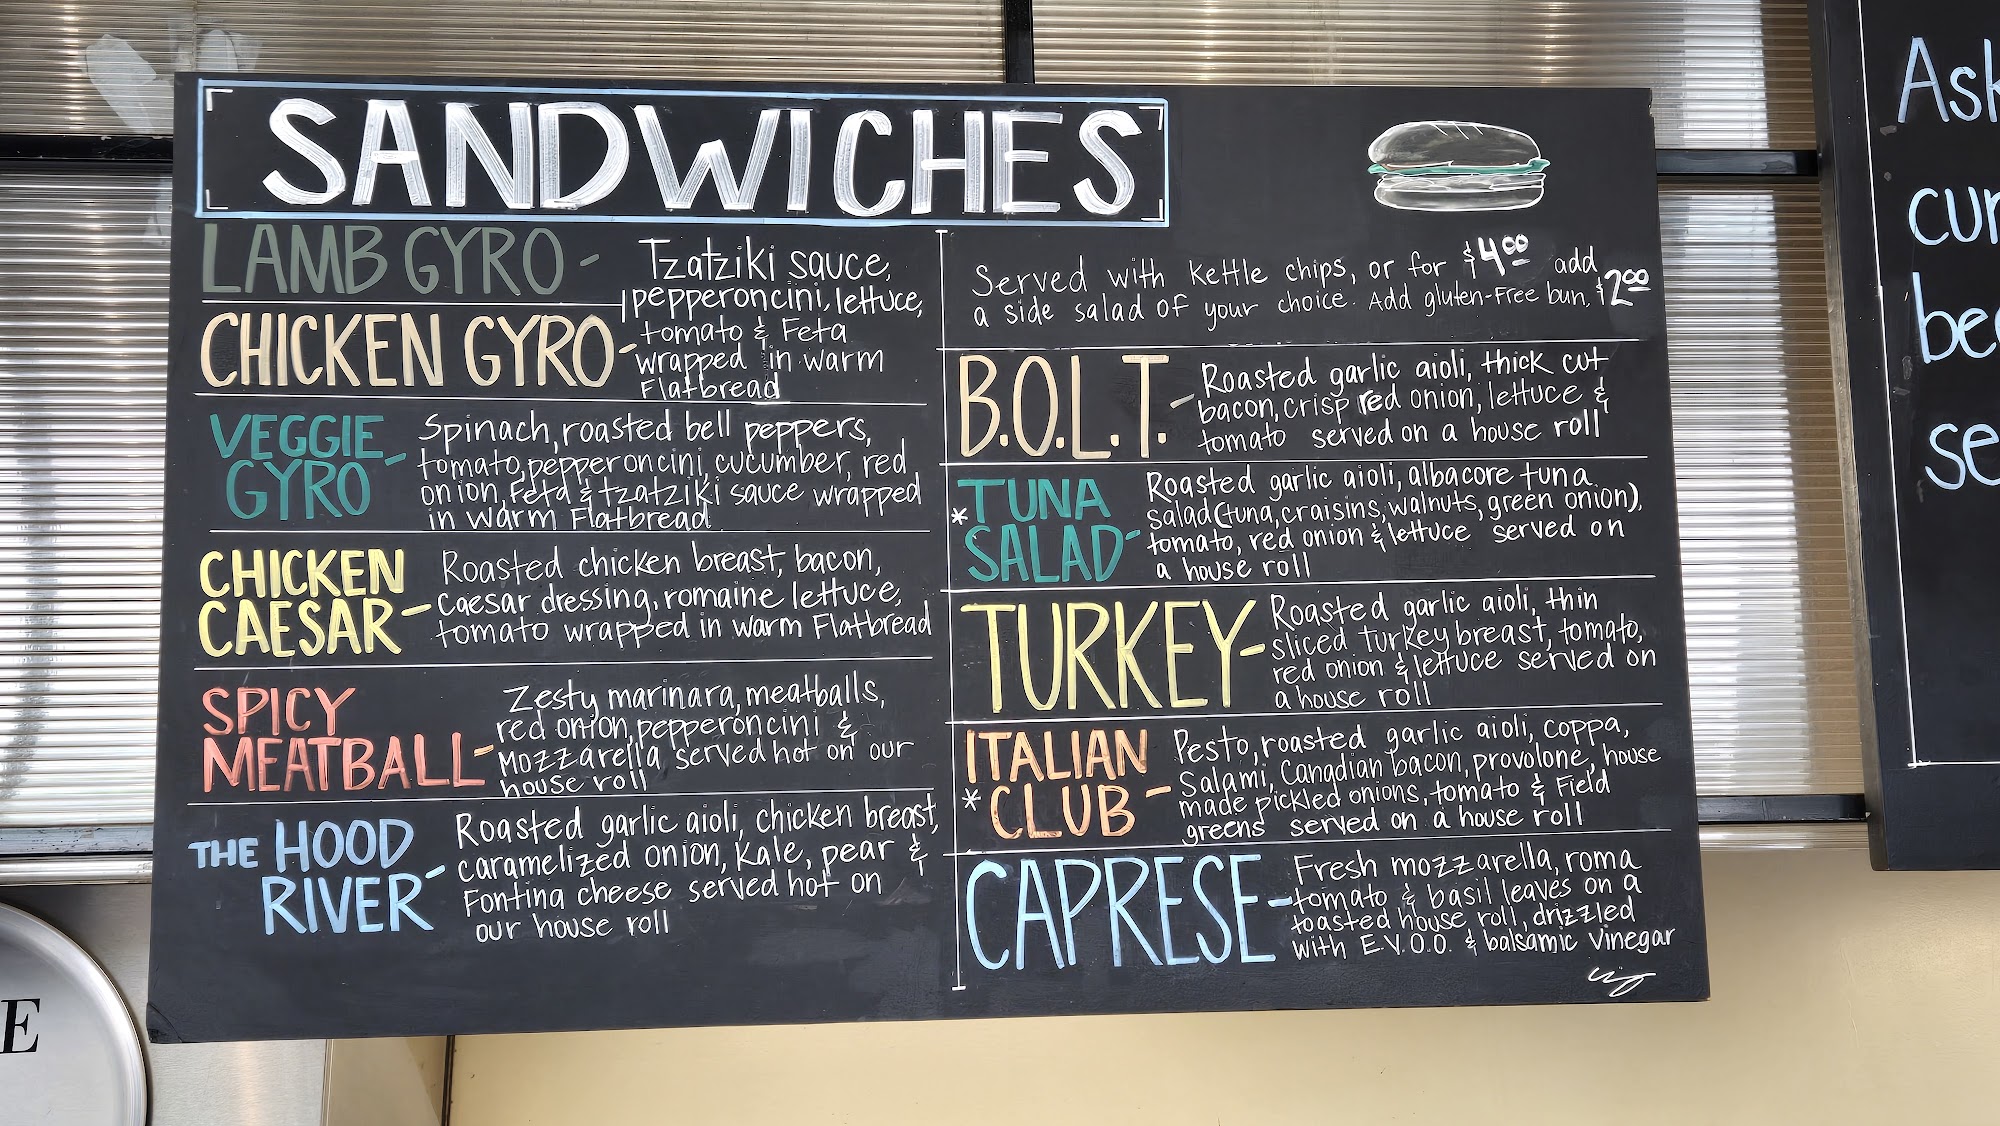 SANDWICHES
LAMB GYRO -
CHICKEN GYRO -
Tzatziki sauce,
pepperoncini, lettuce,
tomato & Feta
wrapped in warm
Flatbread
VEGGIE
GYRO -
Spinach, roasted bell peppers,
tomato, pepperoncini, cucumber, red
onion, Feta & tzatziki sauce wrapped
in warm Flatbread
CHICKEN
CAESAR -
Roasted chicken breast, bacon,
caesar dressing, romaine lettuce,
tomato wrapped in warm Flatbread
SPICY
MEATBALL -
Zesty marinara, meatballs,
red onion, pepperoncini &
Mozzarella served hot on our
house roll
THE HOOD
RIVER -
Roasted garlic aioli, chicken breast,
caramelized onion, Kale, pear &
Fontina cheese served hot on
our house roll
Served with Kettle chips, or for $4.00 add
a side salad of your choice. Add gluten-Free bun, $2.00
B.O.L.T. -
Roasted garlic aioli, thick cut
bacon, crisp red onion, lettuce &
tomato served on a house roll
* TUNA
SALAD -
Roasted garlic aioli, albacore tuna
salad (tuna, craisins, walnuts, green onion),
tomato, red onion & lettuce served on
a house roll
TURKEY -
Roasted garlic aioli, thin
sliced turkey breast, tomato,
red onion & lettuce served on
a house roll
ITALIAN
* CLUB -
Pesto, roasted garlic aioli, coppa,
Salami, Canadian bacon, provolone, house
made pickled onions, tomato & Field
greens served on a house roll
CAPRESE -
Fresh mozzarella, roma
tomato & basil leaves on a
toasted house roll, drizzled
with E.V.O.O. & balsamic Vinegar
Ask
cur
be
se
E